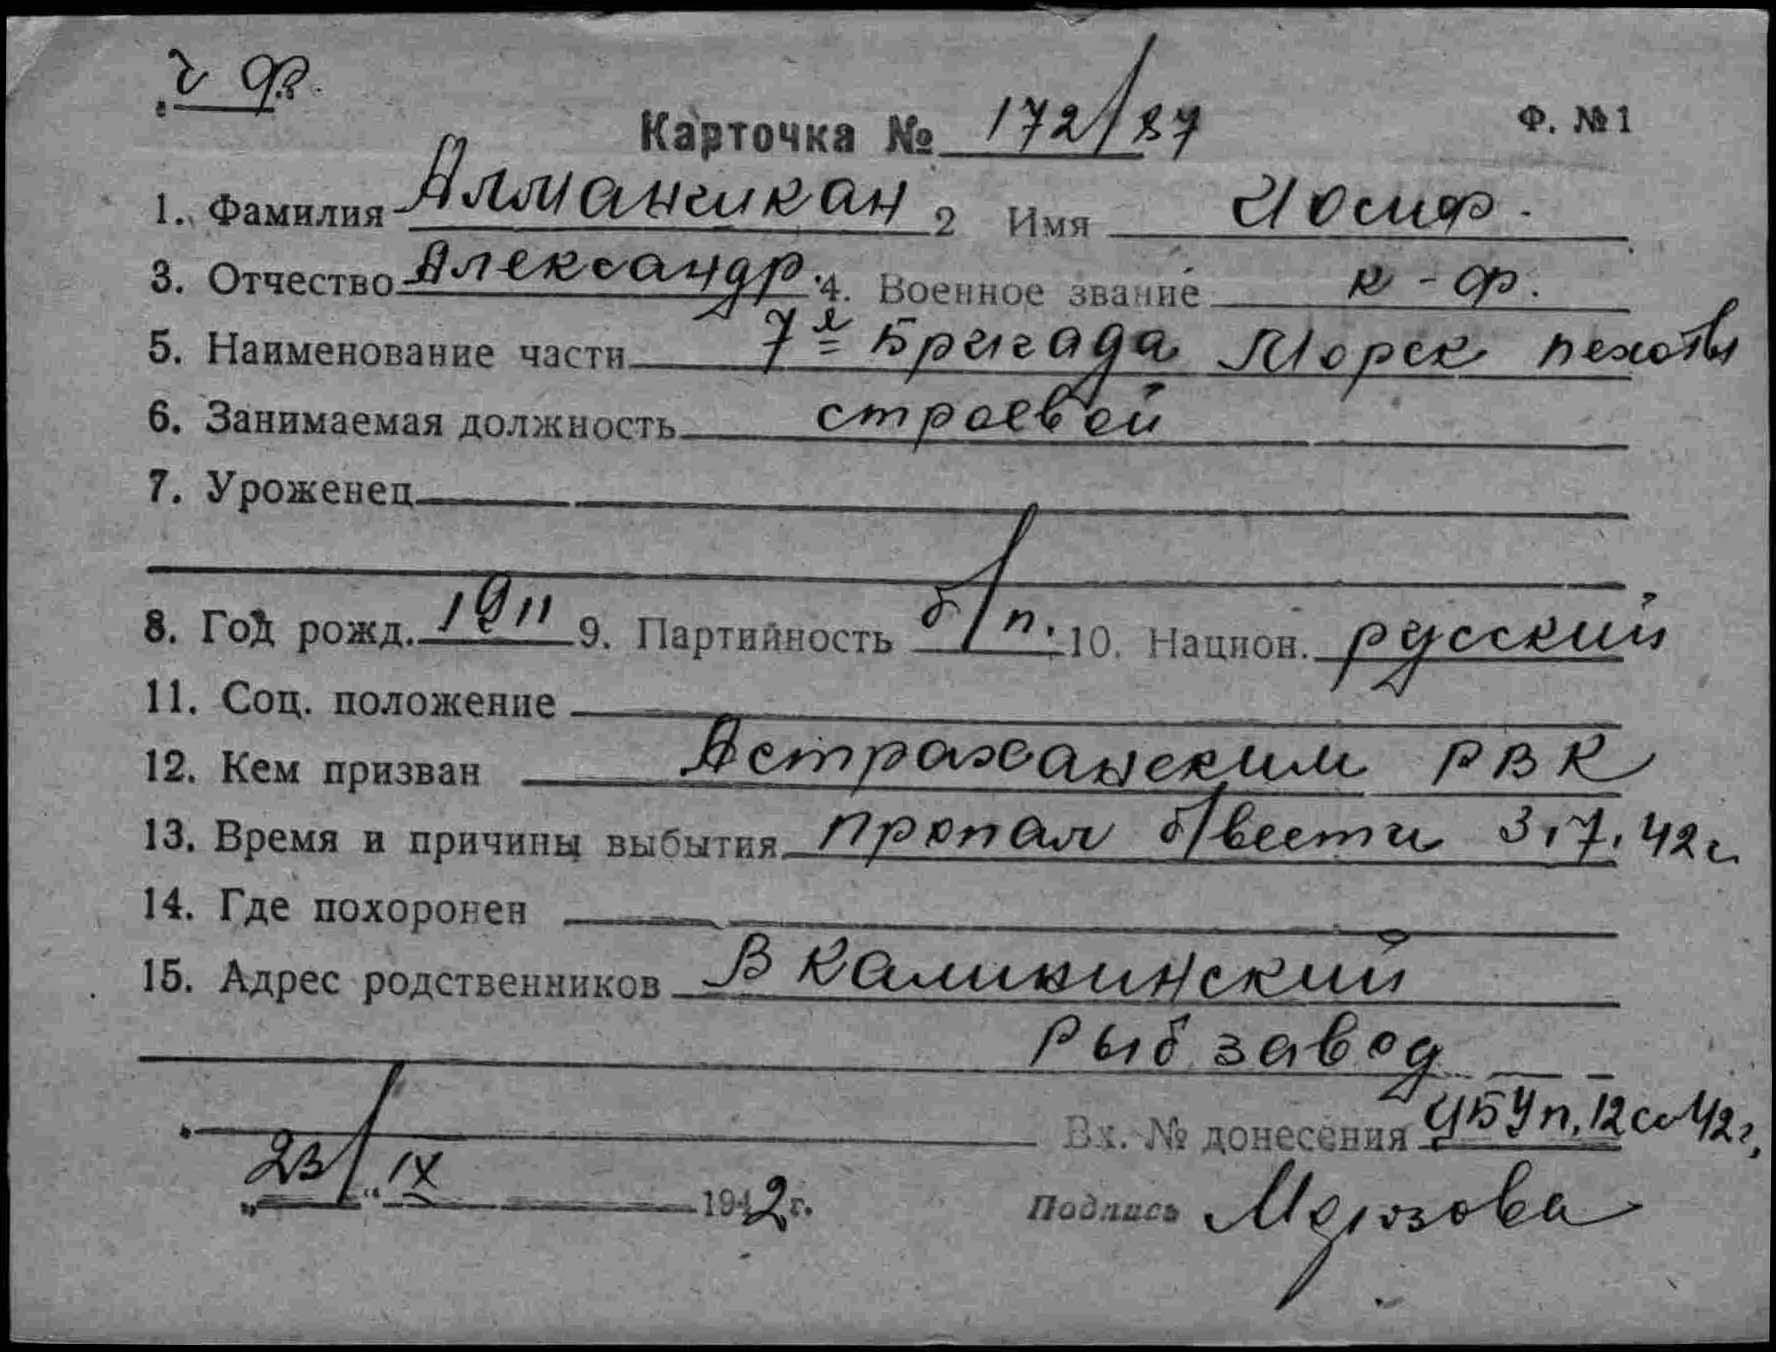 ч Ф.
Карточка № 172/87 Ф. №1
1. Фамилия Алмансикан 2 Имя Иосиф.
3. Отчество Александр. 4. Военное звание к-ф.
5. Наименование части 7я Бригада Морск пехоты
6. Занимаемая должность строевой
7. Уроженец
8. Год рожд. 1911 9. Партийность б/п. 10. Национ. русский
11. Соц. положение
12. Кем призван Астраханским РВК
13. Время и причины выбытия пропал б/вести 3.7.42г.
14. Где похоронен
15. Адрес родственников В Каликинский
Рыбзавод
Вх. № донесения 12 42г.
„23/“ IX 1942г. Подпись